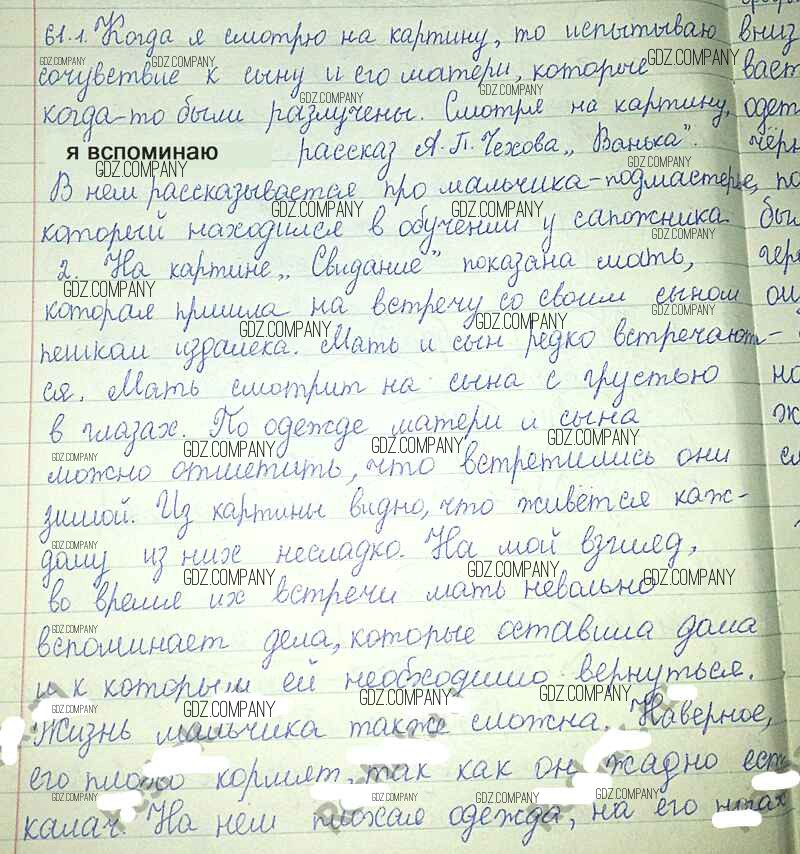 61.1. Когда я смотрю на картину, то испытываю
сочувствие к сыну и его матери, которые
когда-то были разлучены. Смотря на картину,
я вспоминаю рассказ А.П. Чехова „Ванька".
В нем рассказывается про мальчика-подмастерье,
который находился в обучении у сапожника.
2. На картине „Свидание" показана мать,
которая пришла на встречу со своим сыном
пешком издалека. Мать и сын редко встречают-
ся. Мать смотрит на сына с грустью
в глазах. По одежде матери и сына
можно отметить, что встретились они
зимой. Из картины видно, что живётся каж-
дому из них несладко. На мой взгляд,
во время их встречи мать невольно
вспоминает дела, которые оставила дома
и к которым ей необходимо вернуться.
Жизнь мальчика также сложна. Наверное,
его плохо кормят, так как он жадно ест
калач. На нём плохая одежда, на его ногах
GDZ.COMPANY